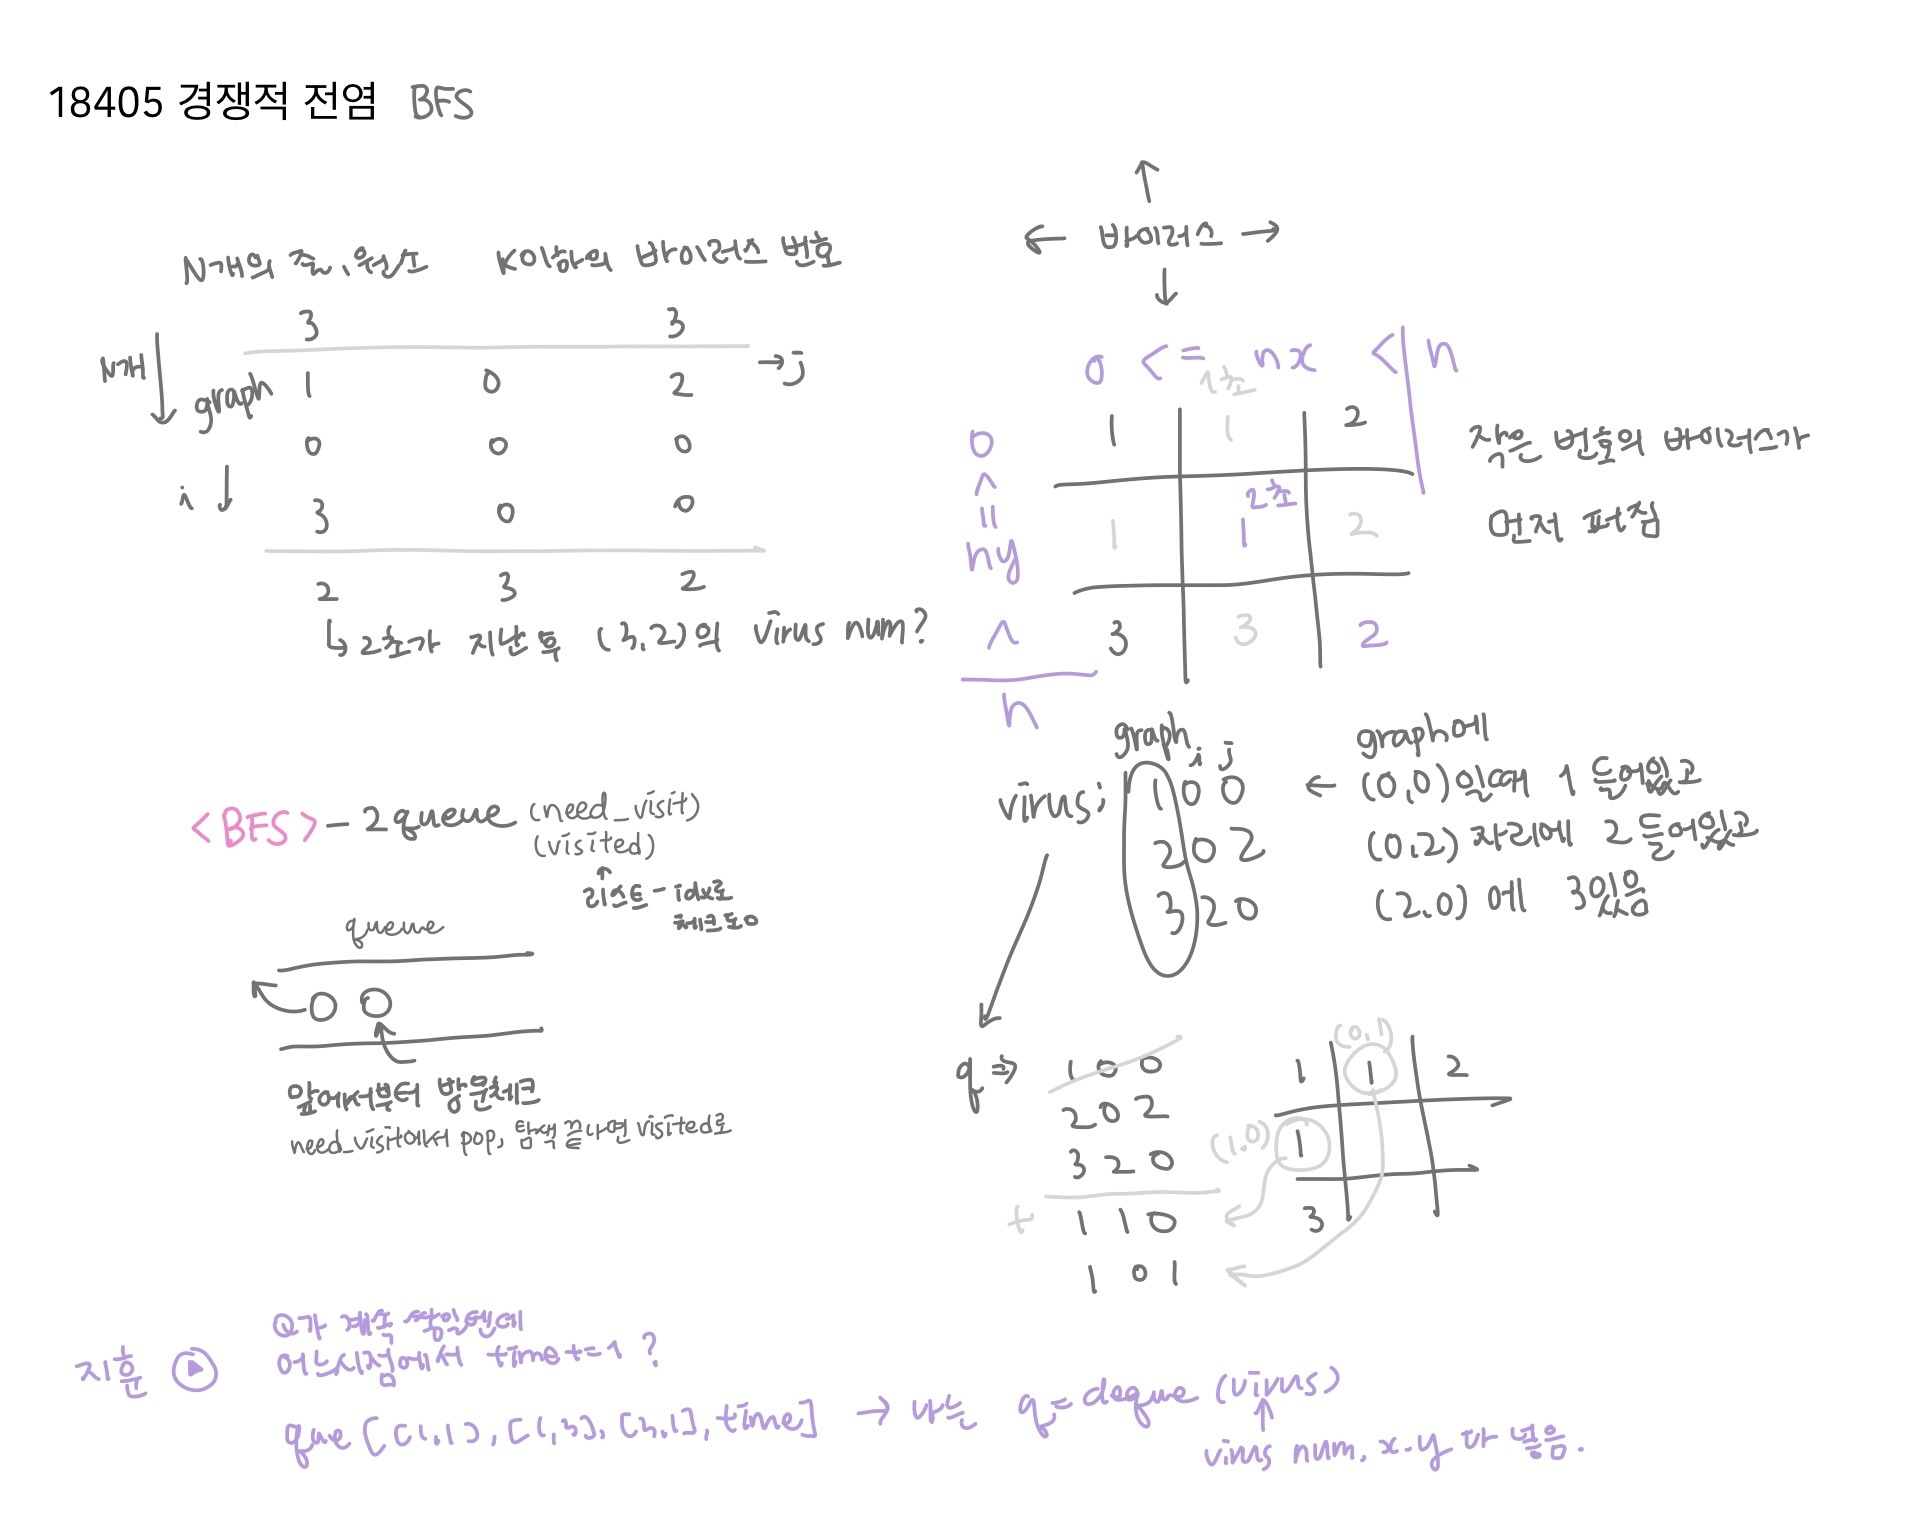 18405 경쟁적 전염 BFS
N개의 줄, 원소 K이하의 바이러스 번호
3 3
N개 graph 1 0 2 →j
0 0 0
i ↓ 3 0 0
2 3 2
↳ 2초가 지난 후 (3,2)의 virus num?
↑
← 바이러스 →
↓
0 <= nx < n
1초
1 1 2
2초
1 1 2
3 3 2
0 <= ny < n
작은 번호의 바이러스가
먼저 퍼짐
<BFS> - 2 queue (need_visit)
(visited)
↑
리스트 - idx로
체크도 o
queue
O O
앞에서부터 방문체크
need_visit에서 pop, 탐색 끝나면 visited로
graph i j
virus; 1 0 0
2 0 2
3 2 0
graph에
← (0,0)일때 1 들어있고
(0,2) 자리에 2 들어있고
(2,0)에 3있음
q ⇒ 1 0 0
2 0 2
3 2 0
+ 1 1 0
1 0 1
(0,1)
1 1 2
(1,0) 1
3
지훈 Q가 계속 쌓일텐데
어느시점에서 time+=1?
que [[1,1], [1,3], [3,1], time] → 나는 q = deque (virus)
↑
virus num, x.y 다 넣음.